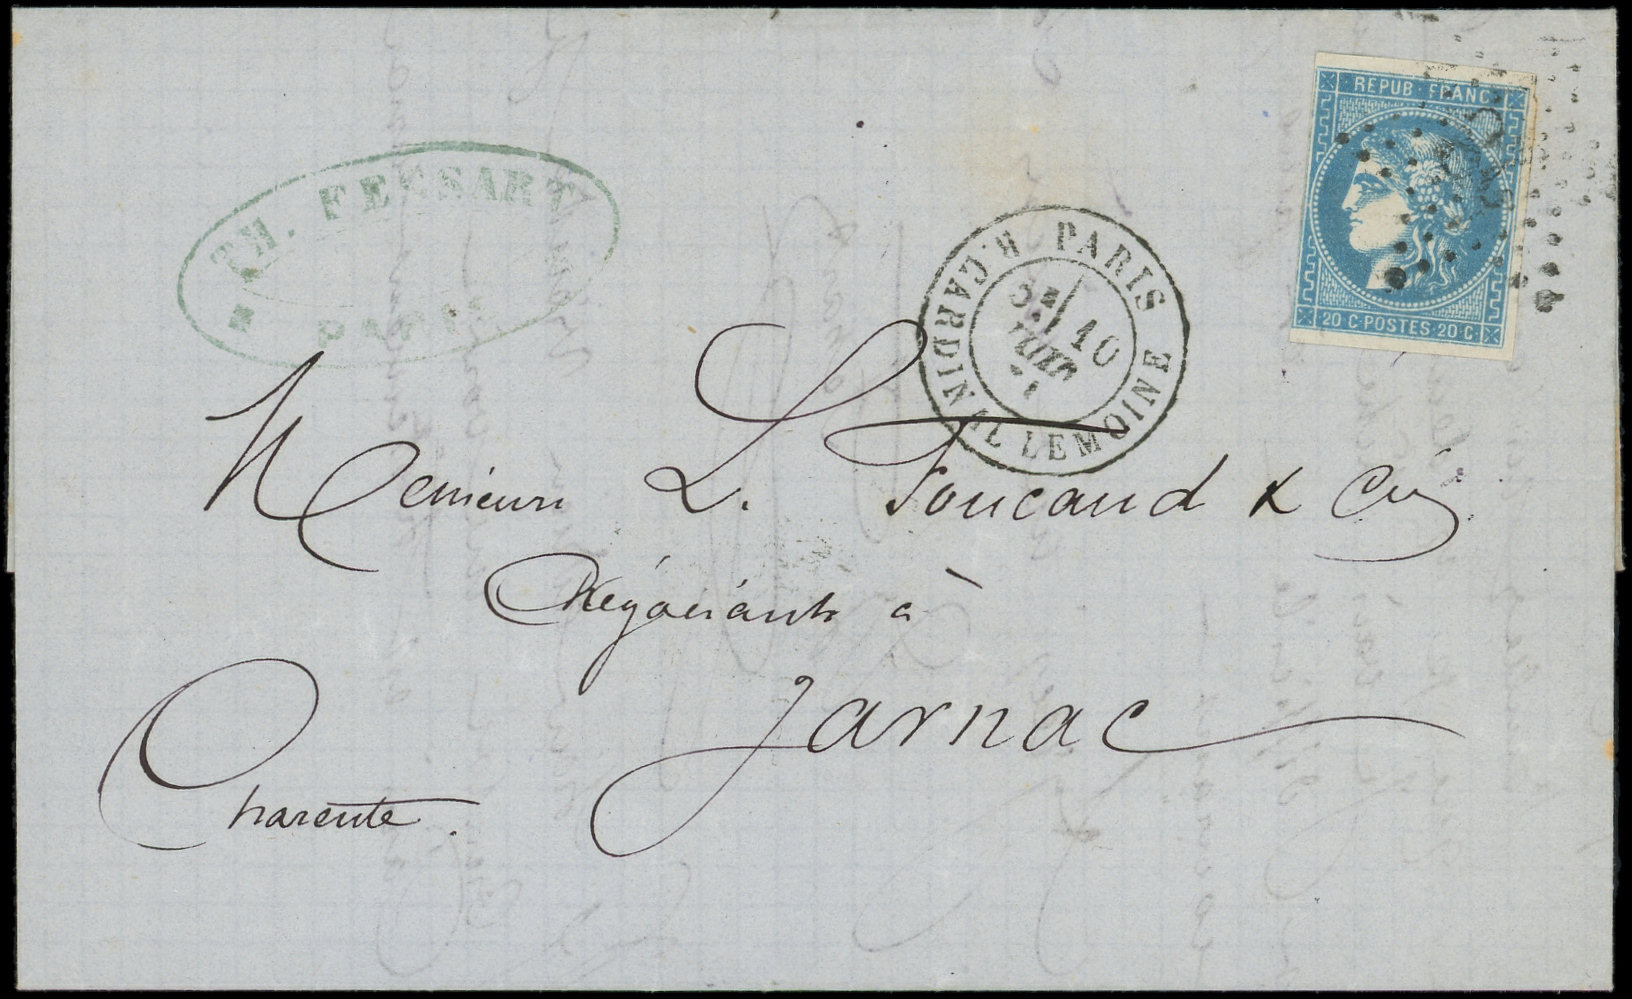 REPUB · FRANC
20 C · POSTES · 20 C
TH. FESSART
PARIS
PARIS
R. CARDINAL LEMOINE
10
Messieurs L. Foucaud & Cie
Négociants à
Jarnac
Charente.